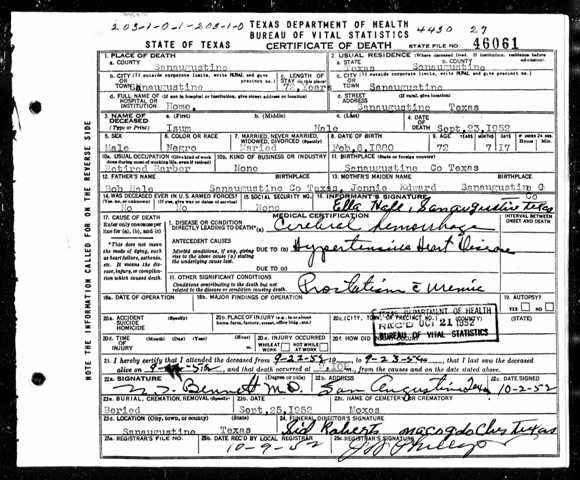 203-1-0-1-203-1-0 TEXAS DEPARTMENT OF HEALTH 4430 27
BUREAU OF VITAL STATISTICS
STATE OF TEXAS CERTIFICATE OF DEATH STATE FILE NO. 46061
1. PLACE OF DEATH
a. COUNTY
Sanaugustine
2. USUAL RESIDENCE (Where deceased lived. If institution, residence before admission)
a. STATE b. COUNTY
Texas Sanaugustine
b. CITY (If outside corporate limits, write RURAL and give precinct no.) c. LENGTH OF STAY (in this city)
Sanaugustine 72, Years
c. CITY (If outside corporate limits, write RURAL and give precinct no.)
Sanaugustine
d. FULL NAME OF HOSPITAL OR INSTITUTION (If not in hospital or institution, give street address or location)
Home,
d. STREET ADDRESS (If rural, give location)
Sanaugustine Texas
3. NAME OF DECEASED (Type or Print) a. (First) b. (Middle) c. (Last) 4. DATE OF DEATH
Isum Hale Sept.23,1952
5. SEX 6. COLOR OR RACE 7. MARRIED, NEVER MARRIED, WIDOWED, DIVORCED (Specify) 8. DATE OF BIRTH 9. AGE YEARS MONTHS DAYS
Male Negro Maried Feb,6,1880 72 7 17
10a. USUAL OCCUPATION (Give kind of work done during most of working life, even if retired) 10b. KIND OF BUSINESS OR INDUSTRY 11. BIRTHPLACE (State or foreign country)
Retired Barber None Sanaugustine Co Texas
12. FATHER'S NAME BIRTHPLACE 13. MOTHER'S MAIDEN NAME BIRTHPLACE
Bob Hale Sanaugustine Co Texas, Jennie Edward Sanaugustin
14. WAS DECEASED EVER IN U.S. ARMED FORCES? 15. SOCIAL SECURITY NO. 16. INFORMANT'S SIGNATURE
No None Ella Hale, Sanaugustine Texas
17. CAUSE OF DEATH
Enter only one cause per line for (a), (b), and (c)
MEDICAL CERTIFICATION
INTERVAL BETWEEN ONSET AND DEATH
I. DISEASE OR CONDITION DIRECTLY LEADING TO DEATH* (a) Cerebral hemorrhage
* This does not mean the mode of dying, such as heart failure, asthenia, etc. It means the disease, injury, or complication which caused death.
ANTECEDENT CAUSES
Morbid conditions, if any, giving rise to the above cause (a) stating the underlying cause last.
DUE TO (b) Hypertensive Heart Disease
DUE TO (c)
II. OTHER SIGNIFICANT CONDITIONS
Conditions contributing to the death but not related to the disease or condition causing death.
18a. DATE OF OPERATION 18b. MAJOR FINDINGS OF OPERATION 19. AUTOPSY?
YES NO
20a. ACCIDENT SUICIDE HOMICIDE (Specify) 20b. PLACE OF INJURY (e.g., in or about home, farm, factory, street, office bldg., etc.) 20c. (CITY, TOWN, OR PRECINCT NO.) (COUNTY) (STATE)
TEXAS DEPARTMENT OF HEALTH
REC'D OCT 21 1952
BUREAU OF VITAL STATISTICS
20d. TIME OF INJURY 20e. INJURY OCCURRED
WHILE AT WORK NOT WHILE AT WORK
21. I hereby certify that I attended the deceased from 9-22-52, to 9-23-52, that I last saw the deceased
alive on and that death occurred at from the causes and on the date stated above.
22a. SIGNATURE (Degree or title) 22b. ADDRESS 22c. DATE SIGNED
Bennett M.D. San Augustine Tex 10-2-52
23a. BURIAL, CREMATION, REMOVAL (Specify) 23b. DATE 23c. NAME OF CEMETERY OR CREMATORY
Boried Sept,25,1952 Noxos
23d. LOCATION (City, town, or county) (State) 24. FUNERAL DIRECTOR'S SIGNATURE
Sanaugustine Texas Sid Roberts nacogdoches Texas
25a. REGISTRAR'S FILE NO. 25b. DATE REC'D BY LOCAL REGISTRAR 25c. REGISTRAR'S SIGNATURE
10-9-52
NOTE THE INFORMATION CALLED FOR ON THE REVERSE SIDE